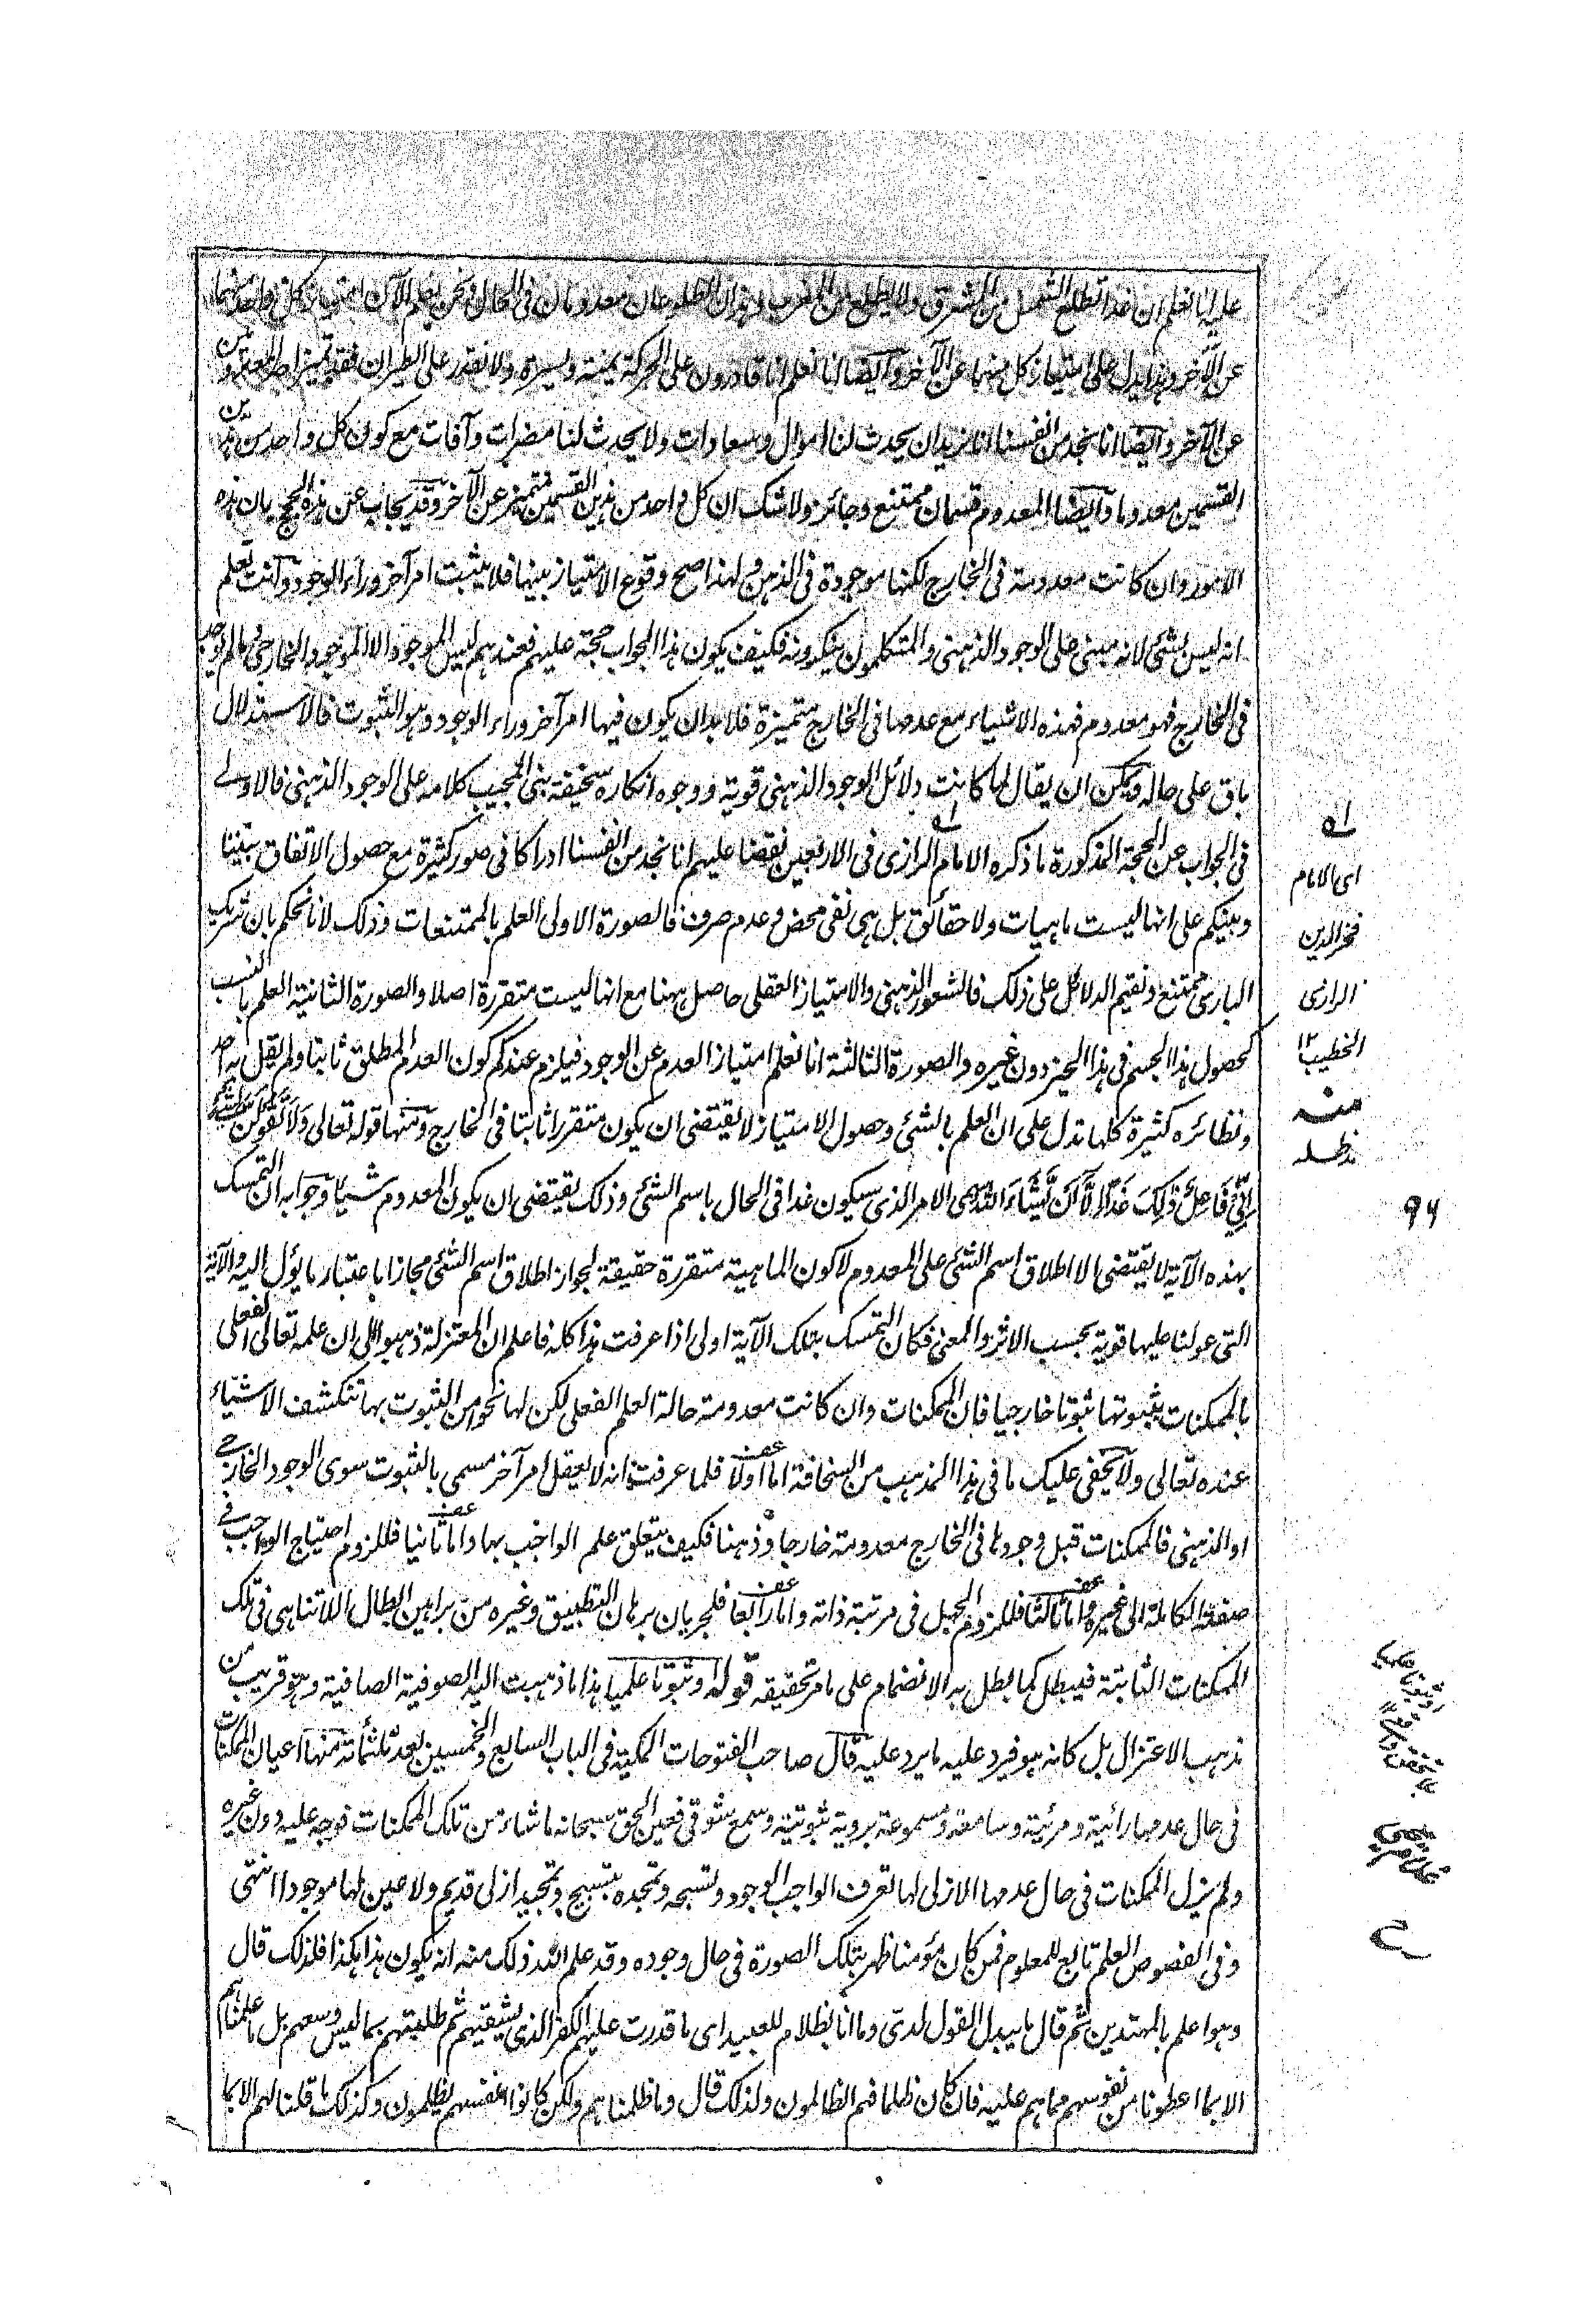 عليه انا نعلم ان غدا تطلع الشمس من المشرق ولا يطلع من المغرب وهذان الطلوعان معدومان فى الحال ونحن نعلم الآن امتياز كل واحد منهما
عن الآخر وهذا يدل على امتياز كل منهما عن الآخر وايضا انا نعلم انا قادرون على الحركة يمنة ويسرة ولا نقدر على الطيران فقد تميز احد المعدومين
عن الآخر وايضا انا نجد من انفسنا انا نريد ان يحدث لنا اموال وسعادات ولا يحدث لنا مضرات وآفات مع كون كل واحد من هذين
القسمين معدوما وايضا المعدوم قسمان ممتنع وجائز ولا شك ان كل واحد من هذين القسمين متميز عن الآخر وقد يجاب عن هذه الحجج بان هذه
الامور وان كانت معدومة فى الخارج لكنها موجودة فى الذهن ولهذا صح وقوع الامتياز بينها فلا يثبت امر آخر وراء الوجود وانت تعلم
انه ليس بشئ لانه مبنى على الوجود الذهنى والمتكلمون ينكرونه فكيف يكون هذا الجواب حجة عليهم فعندهم ليس الموجود الا الموجود الخارجى وما لم يوجد
فى الخارج فهو معدوم فهذه الاشياء مع عدمها فى الخارج متميزة فلا بد ان يكون فيها امر آخر وراء الوجود وهو الثبوت فالاستدلال
باق على حاله ويمكن ان يقال لما كانت دلائل الوجود الذهنى قوية ووجوه انكاره سخيفة بنى المجيب كلامه على الوجود الذهنى فالاولى
فى الجواب عن الحجة المذكورة ما ذكره الامام الرازى فى الاربعين نقضا عليهم انا نجد من انفسنا ادراكا فى صور كثيرة مع حصول الاتفاق بيننا
وبينكم على انها ليست ماهيات ولا حقائق بل هى نفى محض وعدم صرف فالصورة الاولى العلم بالممتنعات وذلك لانا نحكم بان شريك
البارى ممتنع ونقيم الدلائل على ذلك فالشعور الذهنى والامتياز العقلى حاصل ههنا مع انها ليست متقررة اصلا والصورة الثانية العلم بالنسب
كحصول هذا الجسم فى هذا الحيز دون غيره والصورة الثالثة انا نعلم امتياز العدم عن الوجود فيلزم عندكم كون العدم المطلق ثابتا ولم يقل به احد
ونظائره كثيرة كلها تدل على ان العلم بالشئ وحصول الامتياز لا يقتضى ان يكون متقررا ثابتا فى الخارج ومنها قوله تعالى وَلَا تَقُولَنَّ لِشَيْءٍ
إِنِّي فَاعِلٌ ذٰلِكَ غَدًا إِلَّا أَنْ يَشَاءَ اللّٰهُ سمى الامر الذى سيكون غدا فى الحال باسم الشئ وذلك يقتضى ان يكون المعدوم شيئا وجوابه ان التمسك
بهذه الآية لا يقتضى الا اطلاق اسم الشئ على المعدوم لا كون الماهية متقررة حقيقة لجواز اطلاق اسم الشئ مجازا باعتبار ما يؤل اليه والآية
التى عولنا عليها قوية بحسب الاثر والمعنى فكان التمسك بتلك الآية اولى اذا عرفت هذا كله فاعلم ان المعتزلة ذهبوا الى ان علمه تعالى الفعلى
بالممكنات بثبوتها ثبوتا خارجيا فان الممكنات وان كانت معدومة حالة العلم الفعلى لكن لها نحو من الثبوت بها تنكشف الاشياء
عنده تعالى ولا يخفى عليك ما فى هذا المذهب من السخافة اما اولا فلما عرفت انه لا يعقل امر آخر مسمى بالثبوت سوى الوجود الخارجى
او الذهنى فالممكنات قبل وجودها فى الخارج معدومة خارجا وذهنا فكيف يتعلق علم الواجب بها واما ثانيا فللزوم احتياج الواجب فى
صفته الكاملة الى غيره واما ثالثا فللزوم الجهل فى مرتبة ذاته واما رابعا فلجريان برهان التطبيق وغيره من براهين ابطال اللاتناهى فى تلك
الممكنات الثابتة فيبطل كما بطل به الانضمام على ما مر تحقيقه قوله او ثبوتا علميا هذا ما ذهبت اليه الصوفية الصافية وهو قريب من
مذهب الاعتزال بل كانه هو فيرد عليه ما يرد عليه قال صاحب الفتوحات المكية فى الباب السابع والخمسين بعد ثلثمائة منها اعيان الممكنات
فى حال عدمها رائية ومرئية وسامعة ومسموعة برؤية ثبوتية وسمع ثبوتى فعين الحق سبحانه ما شاء من تلك الممكنات فوجه عليه دون غيره
ولم يزل الممكنات فى حال عدمها الازلى لها تعرف الواجب الوجود وتسبحه وتمجده بتسبيح وتمجيد ازلى قديم ولا عين لها موجودا انتهى
وفى الفصوص العلم تابع للمعلوم فمن كان مؤمنا ظهر بتلك الصورة فى حال وجوده وقد علم الله ذلك منه انه يكون هذا هكذا فلذلك قال
وهو اعلم بالمهتدين ثم قال ما يبدل القول لدىّ وما انا بظلام للعبيد اى ما قدرت عليهم الكفر الذى يشقيهم ثم طلبتهم بما ليس وسعهم بل ما علمناهم
الا بما اعطونا من نفوسهم مما هم عليه فان كان ظلما فهم الظالمون ولذلك قال وما ظلمناهم ولكن كانوا انفسهم يظلمون وكذلك ما قلنا لهم الا بما
اى الامام
فخر الدين
الرازى
الخطيب ١٢
منه
مد ظله
٩٦